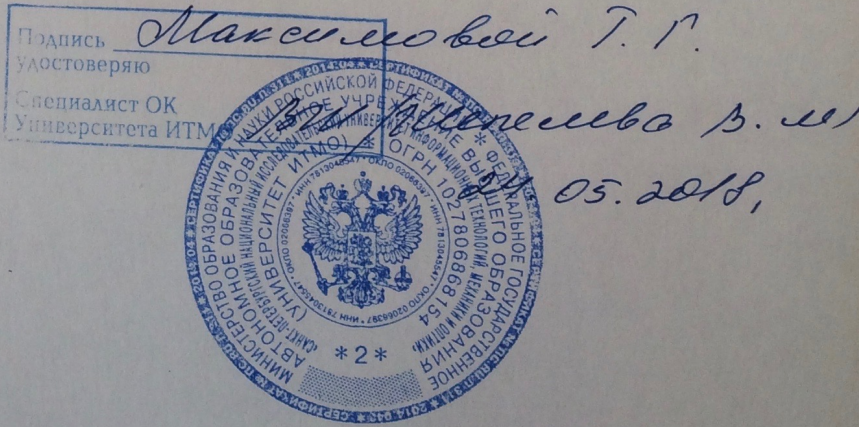 Подпись Максимовой Т. Г.
удостоверяю
Специалист ОК
Университета ИТМО
Шепелева В. М
24 05. 2018,
МИНИСТЕРСТВО ОБРАЗОВАНИЯ И НАУКИ РОССИЙСКОЙ ФЕДЕРАЦИИ * ФЕДЕРАЛЬНОЕ ГОСУДАРСТВЕННОЕ
АВТОНОМНОЕ ОБРАЗОВАТЕЛЬНОЕ УЧРЕЖДЕНИЕ ВЫСШЕГО ОБРАЗОВАНИЯ
«САНКТ-ПЕТЕРБУРГСКИЙ НАЦИОНАЛЬНЫЙ ИССЛЕДОВАТЕЛЬСКИЙ УНИВЕРСИТЕТ ИНФОРМАЦИОННЫХ ТЕХНОЛОГИЙ, МЕХАНИКИ И ОПТИКИ»
(УНИВЕРСИТЕТ ИТМО) * ОГРН 1027806868154
* ИНН 7813045547 * ОКПО 02066397 * ИНН 7813045547 * ОКПО 02066397 * ИНН 7813045547 * ОКПО 02066397
*2*